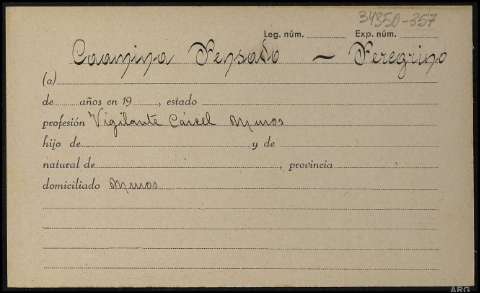 34350-357
Leg. núm. Exp. núm.
Caamiña Pensado — Peregrino
(a)
de años en 19 , estado
profesión Vigilante Cárcel Muros
hijo de y de
natural de , provincia
domiciliado Muros
ARG